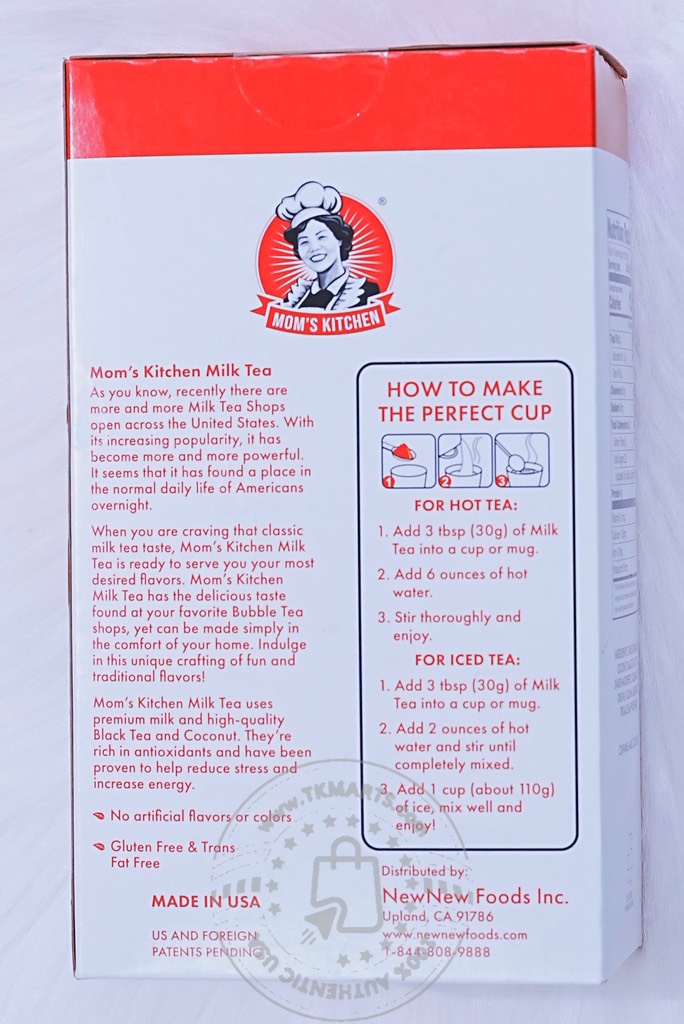 ®
MOM'S KITCHEN
Mom's Kitchen Milk Tea
As you know, recently there are
more and more Milk Tea Shops
open across the United States. With
its increasing popularity, it has
become more and more powerful.
It seems that it has found a place in
the normal daily life of Americans
overnight.
When you are craving that classic
milk tea taste, Mom's Kitchen Milk
Tea is ready to serve you your most
desired flavors. Mom's Kitchen
Milk Tea has the delicious taste
found at your favorite Bubble Tea
shops, yet can be made simply in
the comfort of your home. Indulge
in this unique crafting of fun and
traditional flavors!
Mom's Kitchen Milk Tea uses
premium milk and high-quality
Black Tea and Coconut. They're
rich in antioxidants and have been
proven to help reduce stress and
increase energy.
No artificial flavors or colors
Gluten Free & Trans
Fat Free
MADE IN USA
US AND FOREIGN
PATENTS PENDING
HOW TO MAKE
THE PERFECT CUP
1 2 3
FOR HOT TEA:
1. Add 3 tbsp (30g) of Milk
Tea into a cup or mug.
2. Add 6 ounces of hot
water.
3. Stir thoroughly and
enjoy.
FOR ICED TEA:
1. Add 3 tbsp (30g) of Milk
Tea into a cup or mug.
2. Add 2 ounces of hot
water and stir until
completely mixed.
3. Add 1 cup (about 110g)
of ice, mix well and
enjoy!
Distributed by:
NewNew Foods Inc.
Upland, CA 91786
www.newnewfoods.com
1-844-808-9888
WWW.TKMARTS.com
100% AUTHENTIC USA
Calories